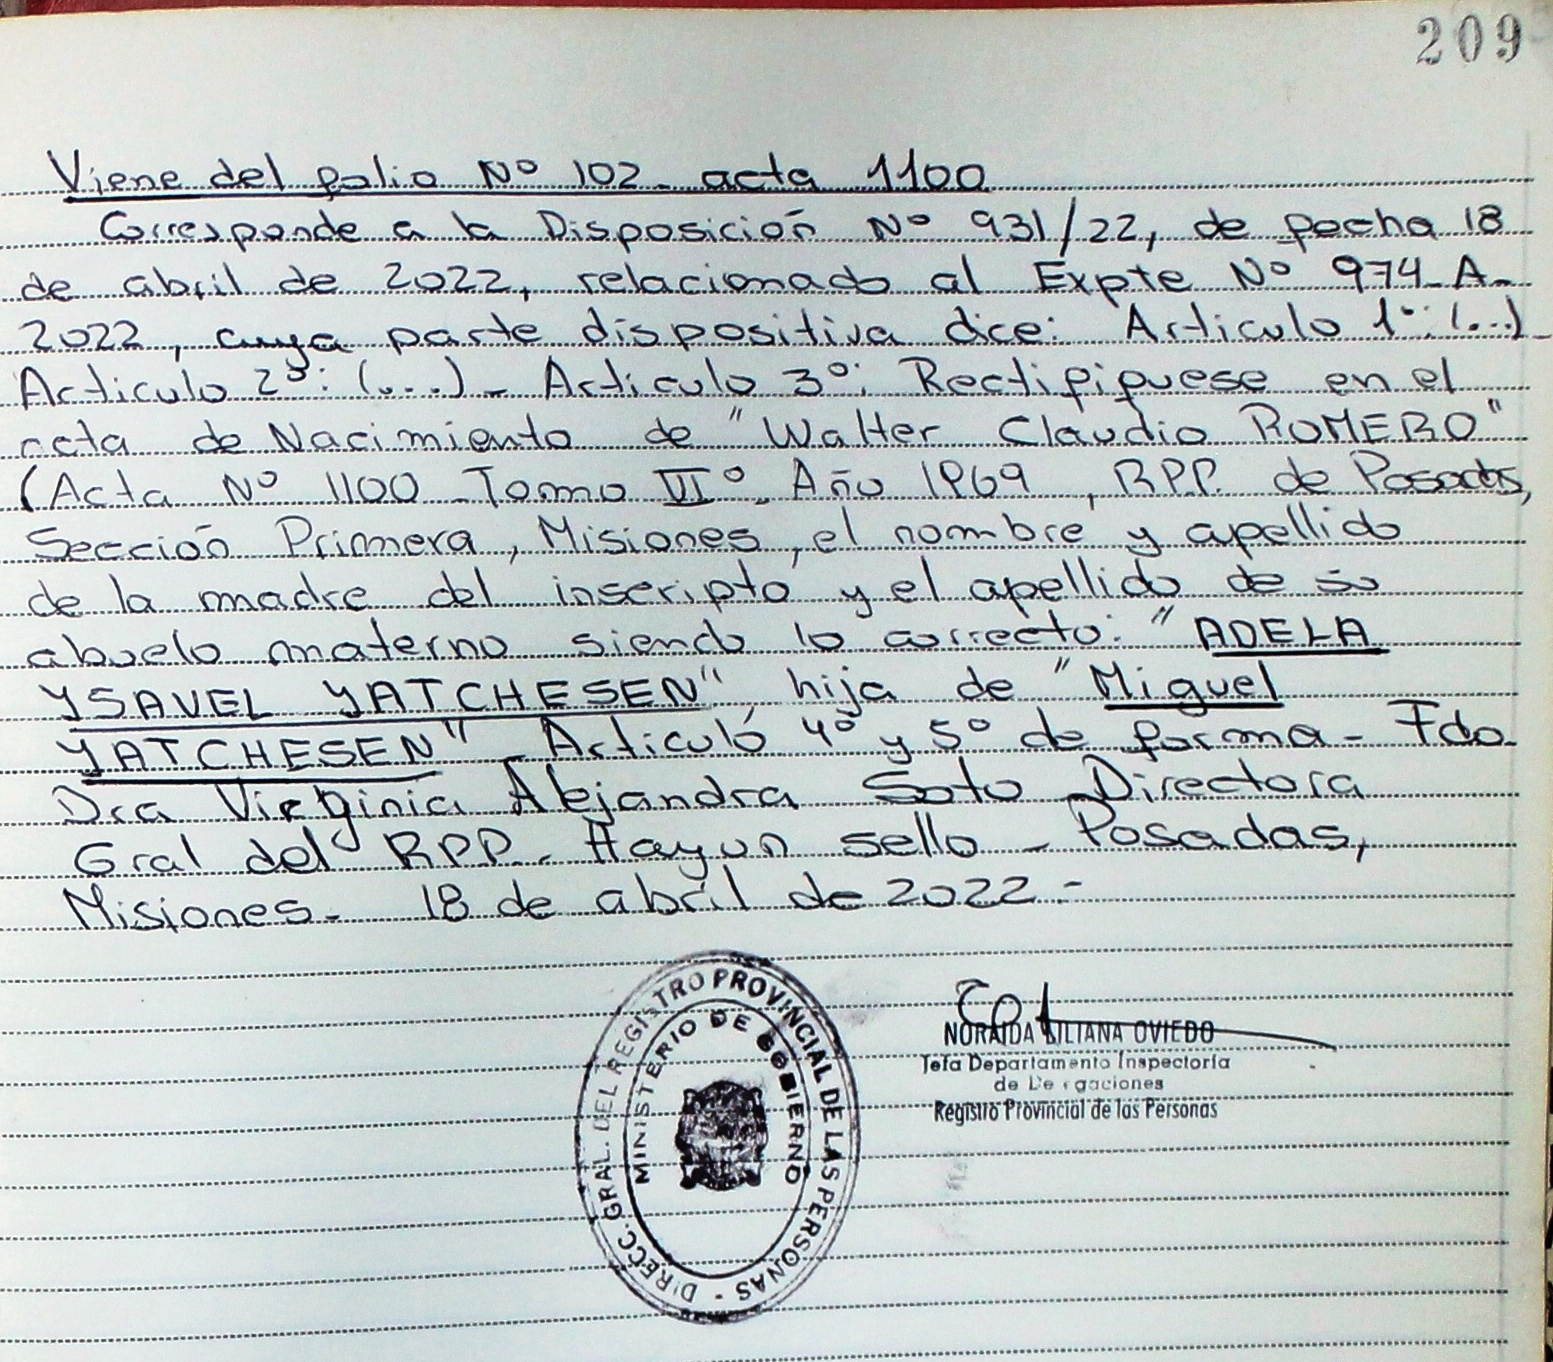 209
Viene del folio Nº 102 - acta 1100
Corresponde a la Disposición Nº 931/22, de fecha 18
de abril de 2022, relacionado al Expte Nº 974-A-
2022, cuya parte dispositiva dice: Articulo 1º: (...)-
Articulo 2º: (...)- Articulo 3º: Rectifiquese en el
acta de Nacimiento de "Walter Claudio ROMERO"
(Acta Nº 1100 - Tomo VIº - Año 1969, RPP. de Posadas,
Sección Primera, Misiones, el nombre y apellido
de la madre del inscripto y el apellido de su
abuelo materno siendo lo correcto: "ADELA
YSAVEL YATCHESEN" hija de "Miguel
YATCHESEN" - Articulo 4º y 5º de forma - Fdo.
Dra Virginia Alejandra Soto - Directora
Gral del RPP. Hay un sello - Posadas,
Misiones - 18 de abril de 2022 -
DIRECC. GRAL. DEL REGISTRO PROVINCIAL DE LAS PERSONAS -
MINISTERIO DE GOBIERNO
NORAIDA LILIANA OVIEDO
Jefa Departamento Inspectoría
de Delegaciones
Registro Provincial de las Personas